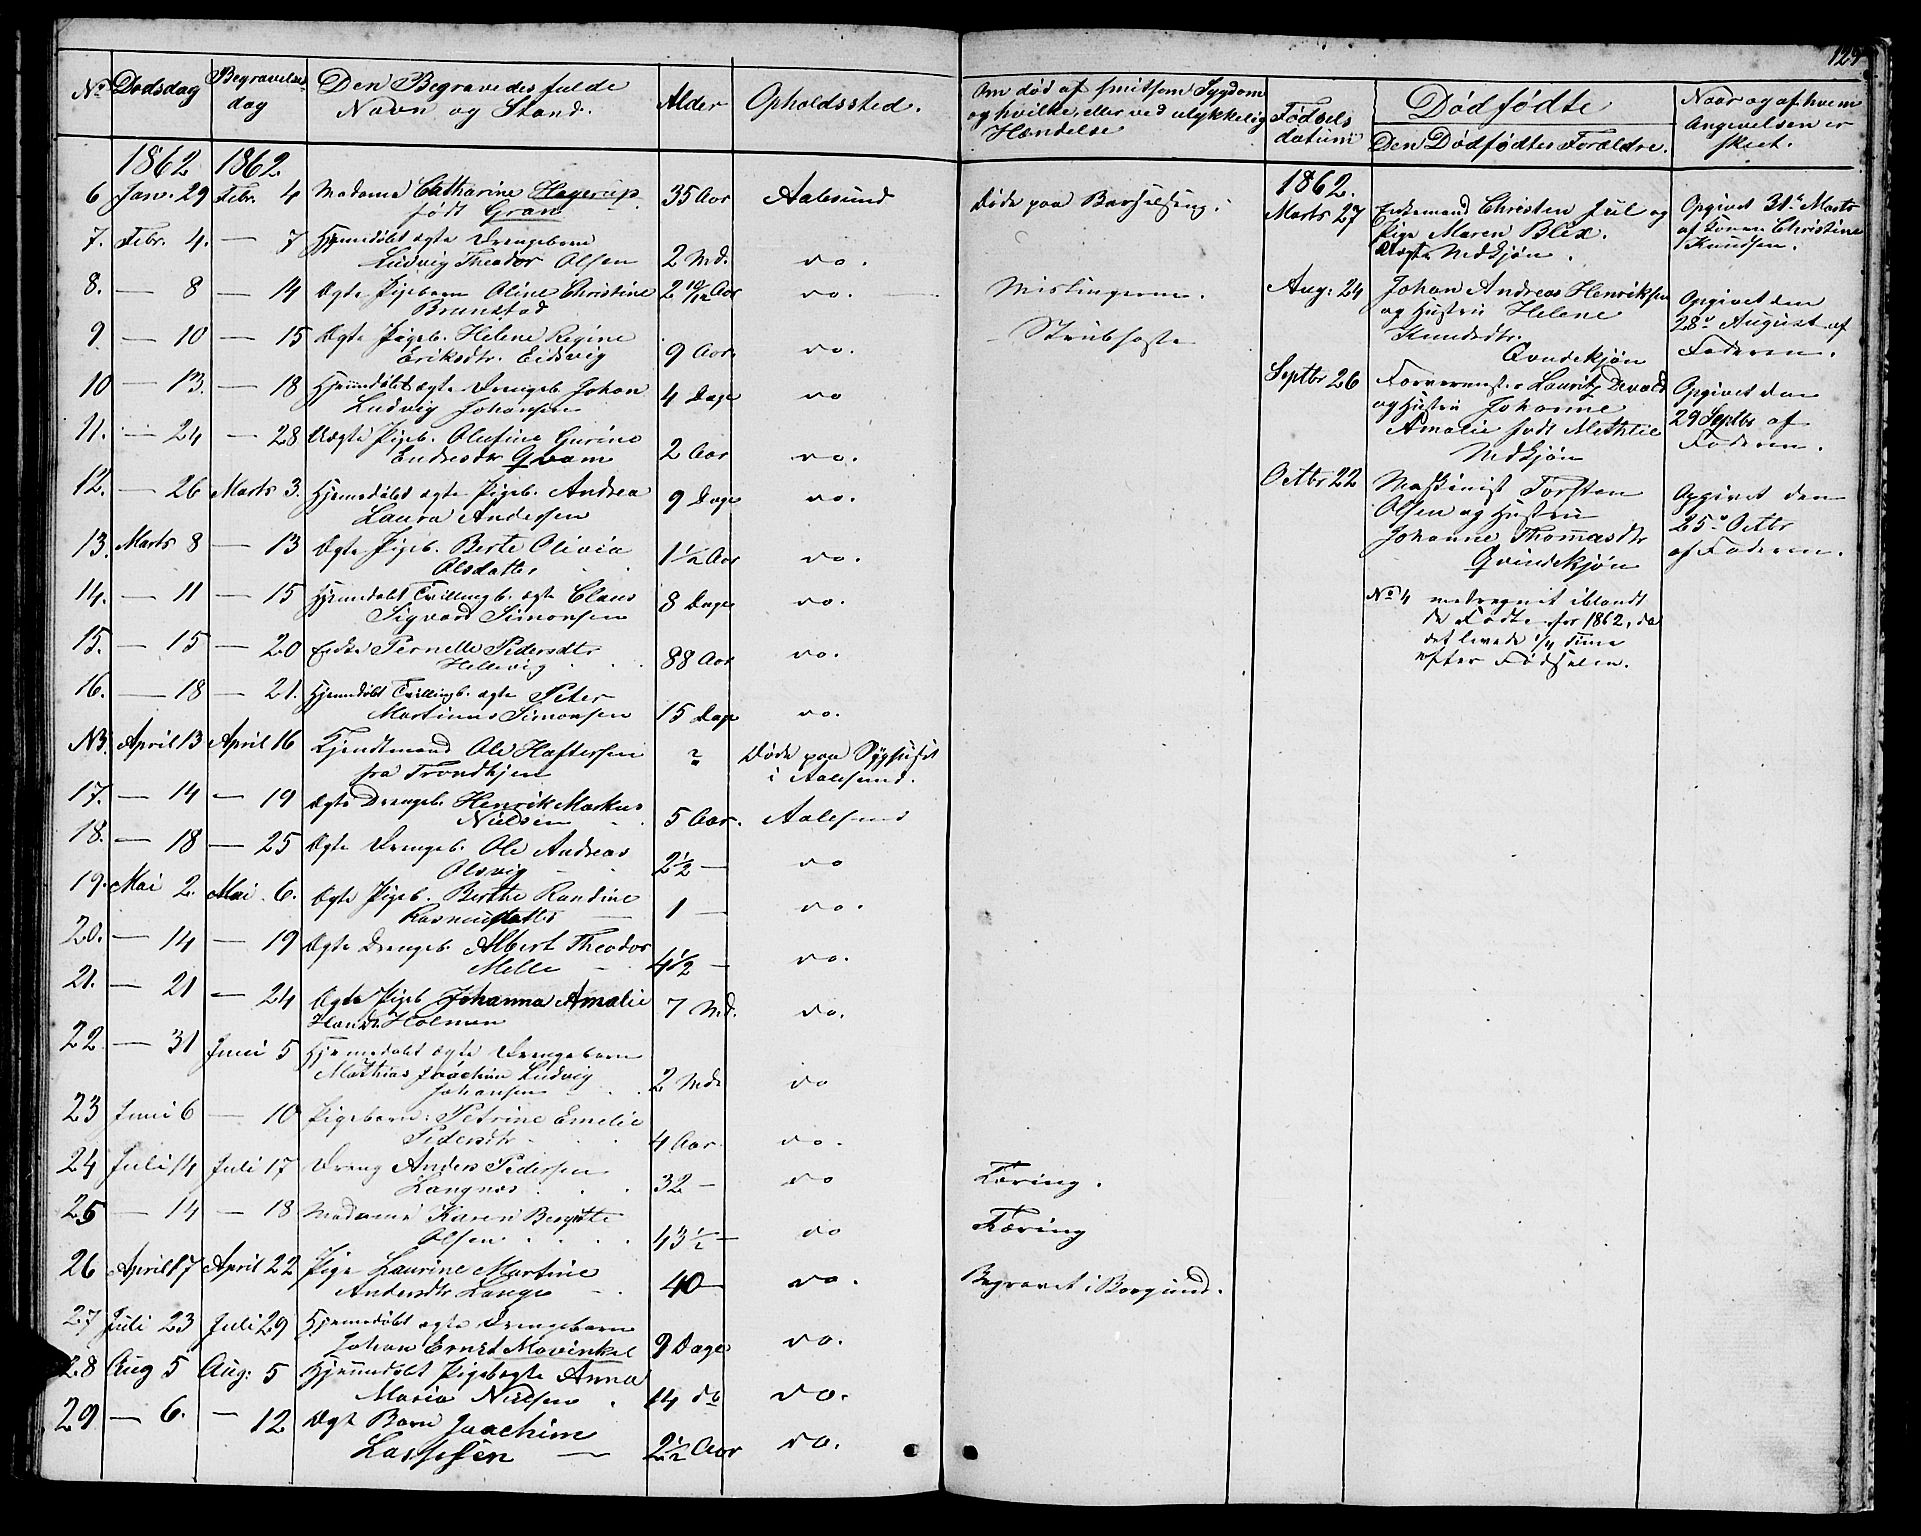 125
No Dødsdag Begravelses dag Den Begravedes fulde Navn og Stand. Alder Opholdssted. Om død af smitsom Sygdom og hvilke, eller ved ulykkelig Hændelse Fødsels datum Dødfødte Den Dødfødtes Forældre. Naar og af hvem Angivelsen er skeet.
1862 1862
6 Janv. 29 Febr. 4 Madame Catharine Hagerup 35 Aar Aalesund Døde paa Barselseng.
født Gran
7. Febr. 4. — 7 Hjemmedøbt ægte Drengebarn
Ludvig Theodor Olsen 2 Md. do.
8. — 8 — 14 Ægte Pigebarn Oline Christine 2 10/12 Aar do. Mislingerne.
Brunstad
9. — 10 — 15 Ægte Pigeb. Helene Regine
Eriksdtr. Eidsvig 9 Aar do. Strubehoste
10 — 13. — 18 Hjemmedøbt ægte Drengeb. Johan
Ludvig Johansen 4 Dage do
11. — 24 — 28 Uægte Pigeb. Olufine Gurine
Endresdtr Qvam 2 Aar do.
12. — 26 Marts 3. Hjemmedøbt ægte Pigeb. Andrea
Laura Andersen 9 Dage do.
13. Marts 8 — 13 Ægte Pigeb. Berte Olivia
Olsdatter 1 1/2 Aar do.
14. — 11 — 15 Hjemmedøbt Tvillingb. ægte Claus
Sigvard Simonsen 8 Dage do.
15. — 15 — 20 Enke Pernelle Pedersdtr
Hellevig 88 Aar do.
16. — 18 — 21. Hjemmedøbt Tvillingb. ægte Peter
Martinus Simonsen 15 Dage do.
NB. April 13 April 16 Ole Haftorsen ? Døde paa Sygehuset
fra Trondhjem i Aalesund.
17. — 14 — 19 Ægte Drengeb. Henrik Markus
Nielsen 5 Aar. Aalesund
18. — 18 — 25 Ægte Drengeb. Ole Andreas
Olsvig 2 1/2 — do
19. Mai 2. Mai 6. Ægte Pigeb. Berthe Randine
Rasmusdatter 1 — do.
20. — 14 — 19 Ægte Drengeb. Albert Theodor
Melle 4 1/2 — do.
21. — 21 — 24 Ægte Pigeb. Johanna Amalie 7 Md. do.
Hansdtr Holmen
22. — 31 Juni 5 Hjemmedøbt ægte Drengebarn
Mathias Joachim Ludvig
Johansen 2 Mdr do
23 Juni 6 — 10 Pigebarn: Petrine Emelie
Pedersdtr 4 Aar do.
24 Juli 14 Juli 17 Dreng Anders Pedersen
Langnes 32 — do Tæring.
25 — 14 — 18 Madame Karen Bergitte
Olsen 43 1/2 — do Tæring
26 April 17 April 22 Pige Laurine Martine
Andersdtr Lange 40 — do. Begravet i Borgund.
27 Juli 23 Juli 29 Hjemmedøbt ægte Drengebarn
Johan Ernst Mowinkel 9 Dage do.
28 Aug 5 Aug: 5 Hjemmedøbt Pigeb ægte Anna
Maria Nielsen 14 do do.
29 — 6. — 12 Ægte Barn Joachim
Lassesen 2 1/2 Aar do.
1862.
Marts 27 Enkemand Christen Jul og
Pige Maren Blix.
Uægte Mdkjøn.
Opgivet 31te Marts
af Konen Christine
Knudsen.
Aug: 24 Johan Andreas Henriksen
og Hustru Helene
Knudsdtr.
Qvindekjøn
Opgivet den
28de August af
Faderen.
Septbr 26 Farvermester Lauritz Devold
og Hustru Johanne
Amalie født
Mdkjøn
Opgivet den
29 Septbr af
Faderen.
Octbr 22 Maskinist Torsten
Olsen og Hustru
Johanne Thomasdtr
Qvindekjøn
Opgivet den
25de Octbr
af Faderen.
No 4 medregnet iblandt
de Fødte for 1862, da
det levede 1/4 Time
efter Fødselen.